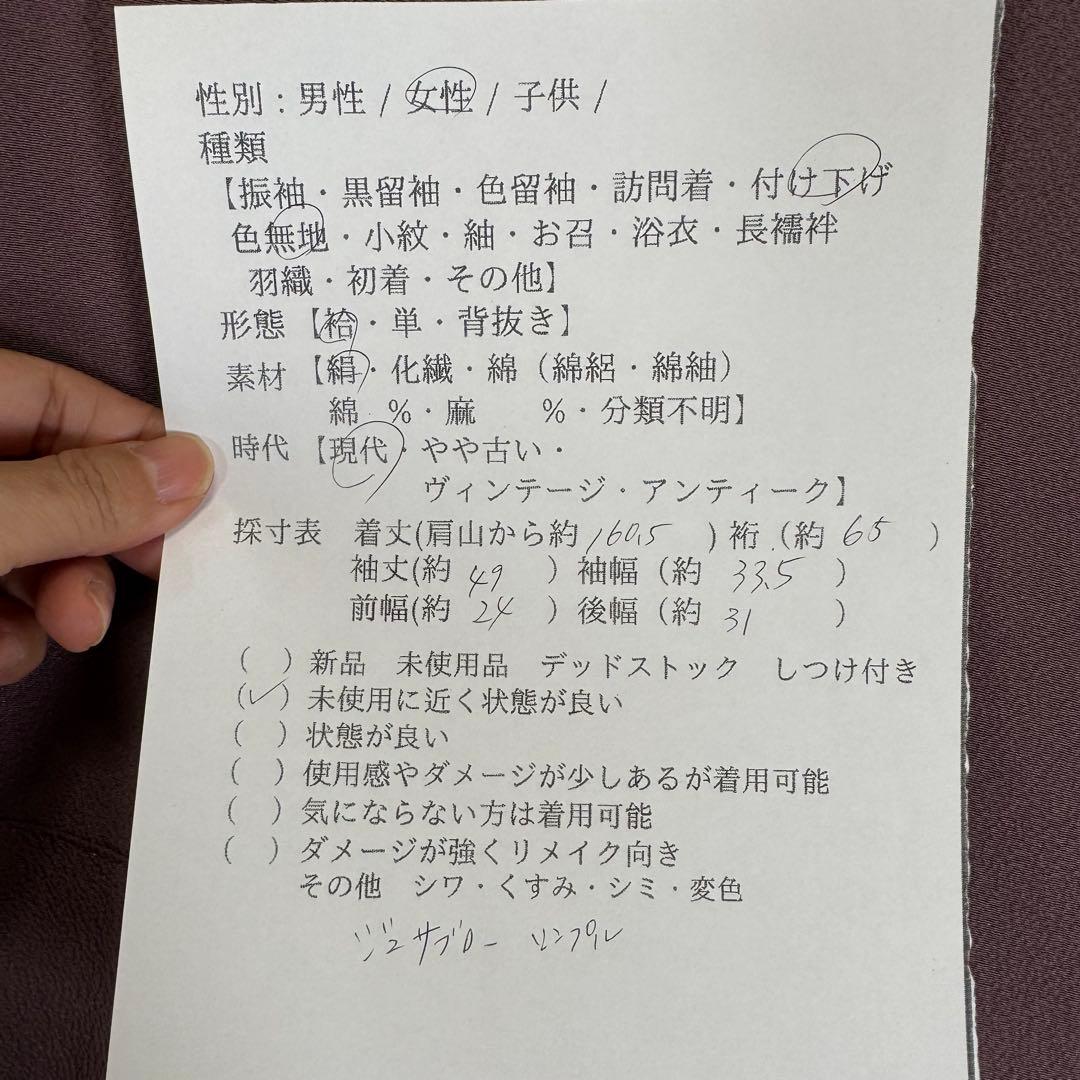 性別：男性 / 女性 / 子供 /
種類
【振袖・黒留袖・色留袖・訪問着・付け下げ
色無地・小紋・紬・お召・浴衣・長襦袢
羽織・初着・その他】
形態【袷・単・背抜き】
素材【絹・化繊・綿（綿絽・綿紬）
綿 %・麻 %・分類不明】
時代【現代・やや古い・
ヴィンテージ・アンティーク】
採寸表 着丈(肩山から約 160.5 ) 裄（約 65 ）
袖丈(約 49 ）袖幅（約 33.5 ）
前幅(約 24 ）後幅（約 31 ）
( ) 新品 未使用品 デッドストック しつけ付き
(✓) 未使用に近く状態が良い
( ) 状態が良い
( ) 使用感やダメージが少しあるが着用可能
( ) 気にならない方は着用可能
( ) ダメージが強くリメイク向き
その他 シワ・くすみ・シミ・変色
ジュサブロー